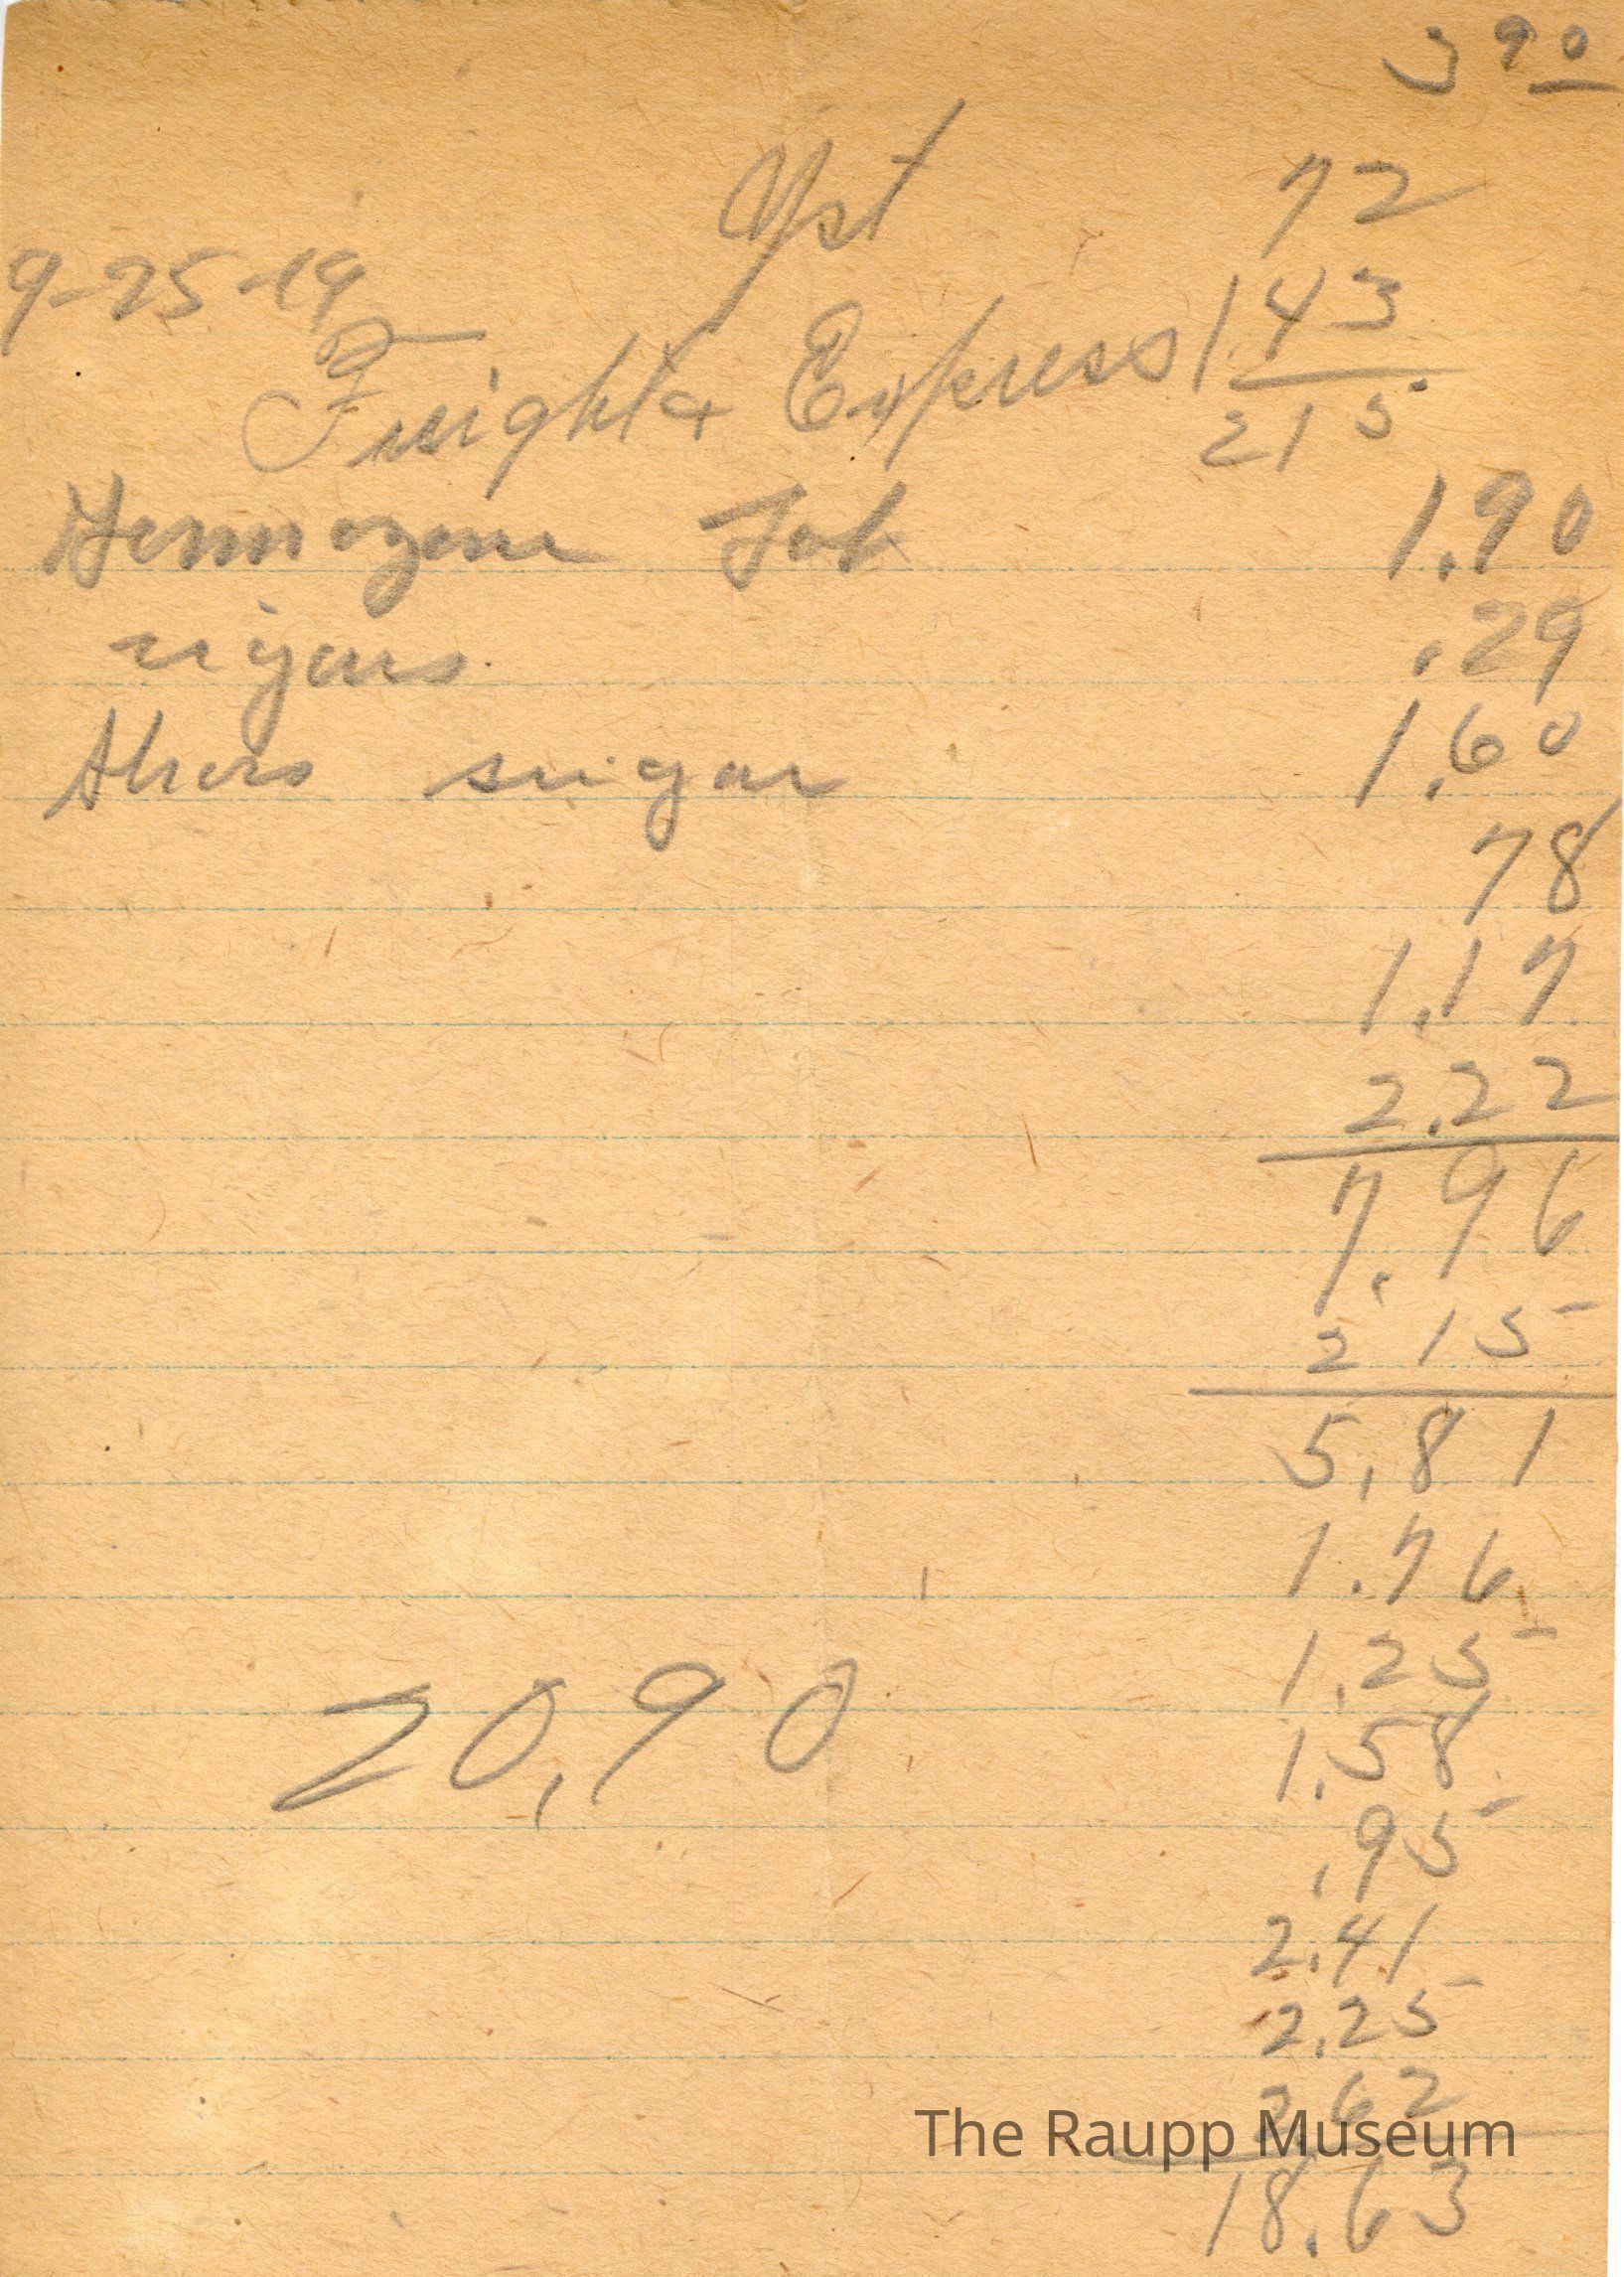 3 90
72
9-25-19
Freight & Express 1.43
2 15
Germozone Tab 1.90
cigars .29
sugar 1.60
78
1.17
2.22
7.96
2 15
5,81
1.76
1.25
20,90
1.58
,95
2.41
2.25
2.62
The Raupp Museum
18.63